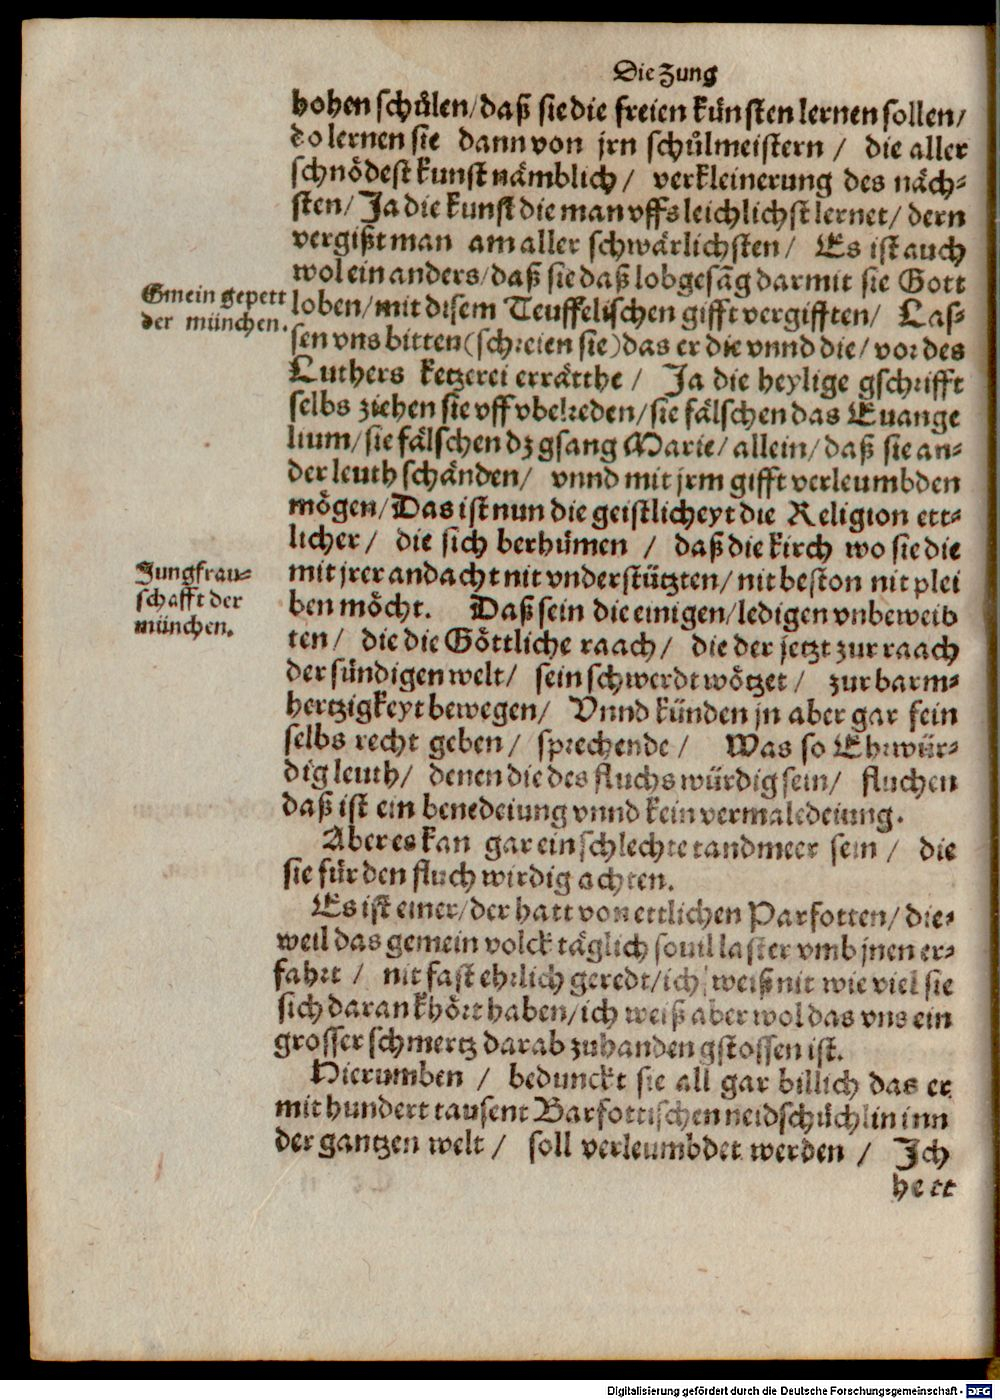 Die Zung
hohen schůlen/ daß sie die freien künsten lernen sollen/
do lernen sie dann von jrn schůlmeistern / die aller
schnödest kunst nämblich/ verkleinerung des näch-
sten/ Ja die kunst die man vffs leichlichst lernet/ dern
vergißt man am aller schwärlichsten/ Es ist auch
wol ein anders/ daß sie daß lobgesãg darmit sie Gott
Gmein gepett
der münchen.
loben/ mit disem Teuffelischen gifft vergifften/ Las-
sen vns bitten (schreien sie) das er die vnnd die/ vor des
Luthers ketzerei errätthe / Ja die heylige gschrifft
selbs ziehen sie vff vbelreden/ sie fälschen das Euange
lium/ sie fälschen dz gsang Marie/ allein/ daß sie an-
der leuth schänden/ vnnd mit jrm gifft verleumbden
mögen/ Das ist nun die geistlicheyt die Religion ett-
licher / die sich berhümen / daß die kirch wo sie die
Jungfrau-
schafft der
münchen.
mit jrer andacht nit vnderstützten/ nit beston nit plei
ben möcht. Daß sein die einigen/ ledigen vnbeweib
ten/ die die Göttliche raach/ die der jetzt zur raach
der sündigen welt/ sein schwerdt wötzet / zur barm-
hertzigkeyt bewegen/ Vnnd künden jn aber gar fein
selbs recht geben/ sprechende / Was so Ehrwür-
dig leuth/ denen die des fluchs würdig sein/ fluchen
daß ist ein benedeiung vnnd kein vermaledeiung.
Aber es kan gar ein schlechte tandmeer sein / die
sie für den fluch wirdig achten.
Es ist einer/ der hatt von ettlichen Parfotten/ die-
weil das gemein volck täglich souil laster vmb jnen er-
fahrt / nit fast ehrlich geredt/ ich weiß nit wie viel sie
sich daran khört haben/ ich weiß aber wol das vns ein
grosser schmertz darab zuhanden gstossen ist.
Hierumben / bedunckt sie all gar billich das er
mit hundert tausent Barfottischen neidschüchlin inn
der gantzen welt / soll verleumbdet werden / Ich
hett
Digitalisierung gefördert durch die Deutsche Forschungsgemeinschaft - DFG